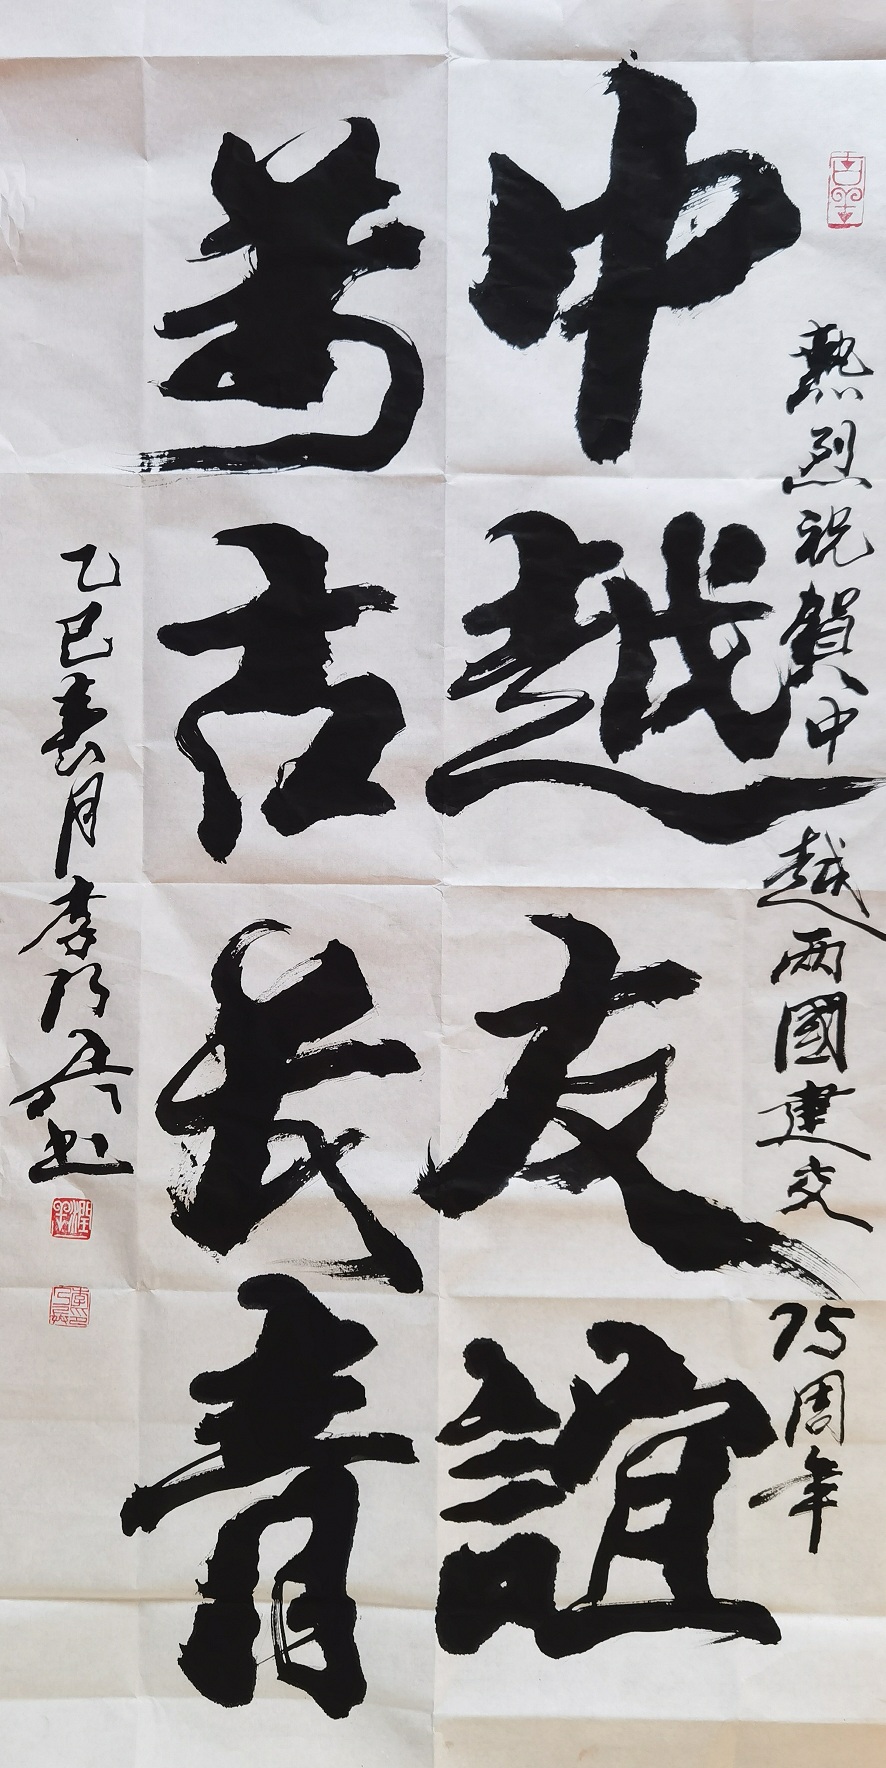 熱烈祝賀中越兩國建交75周年
中越友誼
萬古長青
乙巳春月李巧兵书